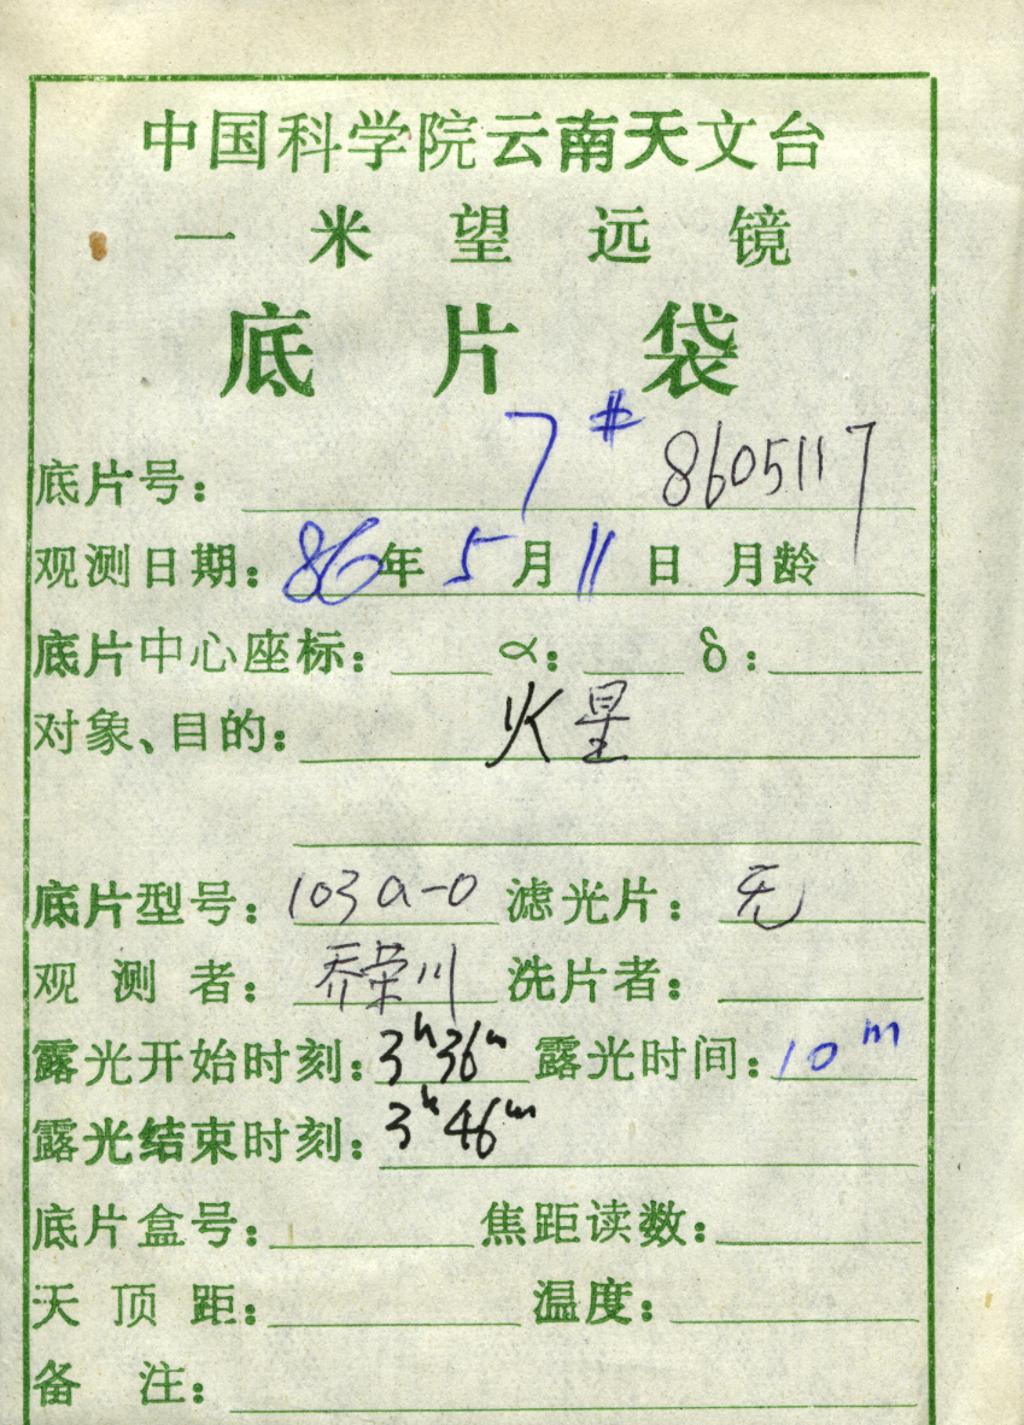 中国科学院云南天文台
一米望远镜
底片袋
底片号： 7# 8605117
观测日期：86年5月11日 月龄
底片中心座标： α： δ：
对象、目的： 火星
底片型号：103a-0 滤光片： 无
观测者： 乔荣川 洗片者：
露光开始时刻：3h36m 露光时间：10m
露光结束时刻：3h46m
底片盒号： 焦距读数：
天顶距： 温度：
备注：